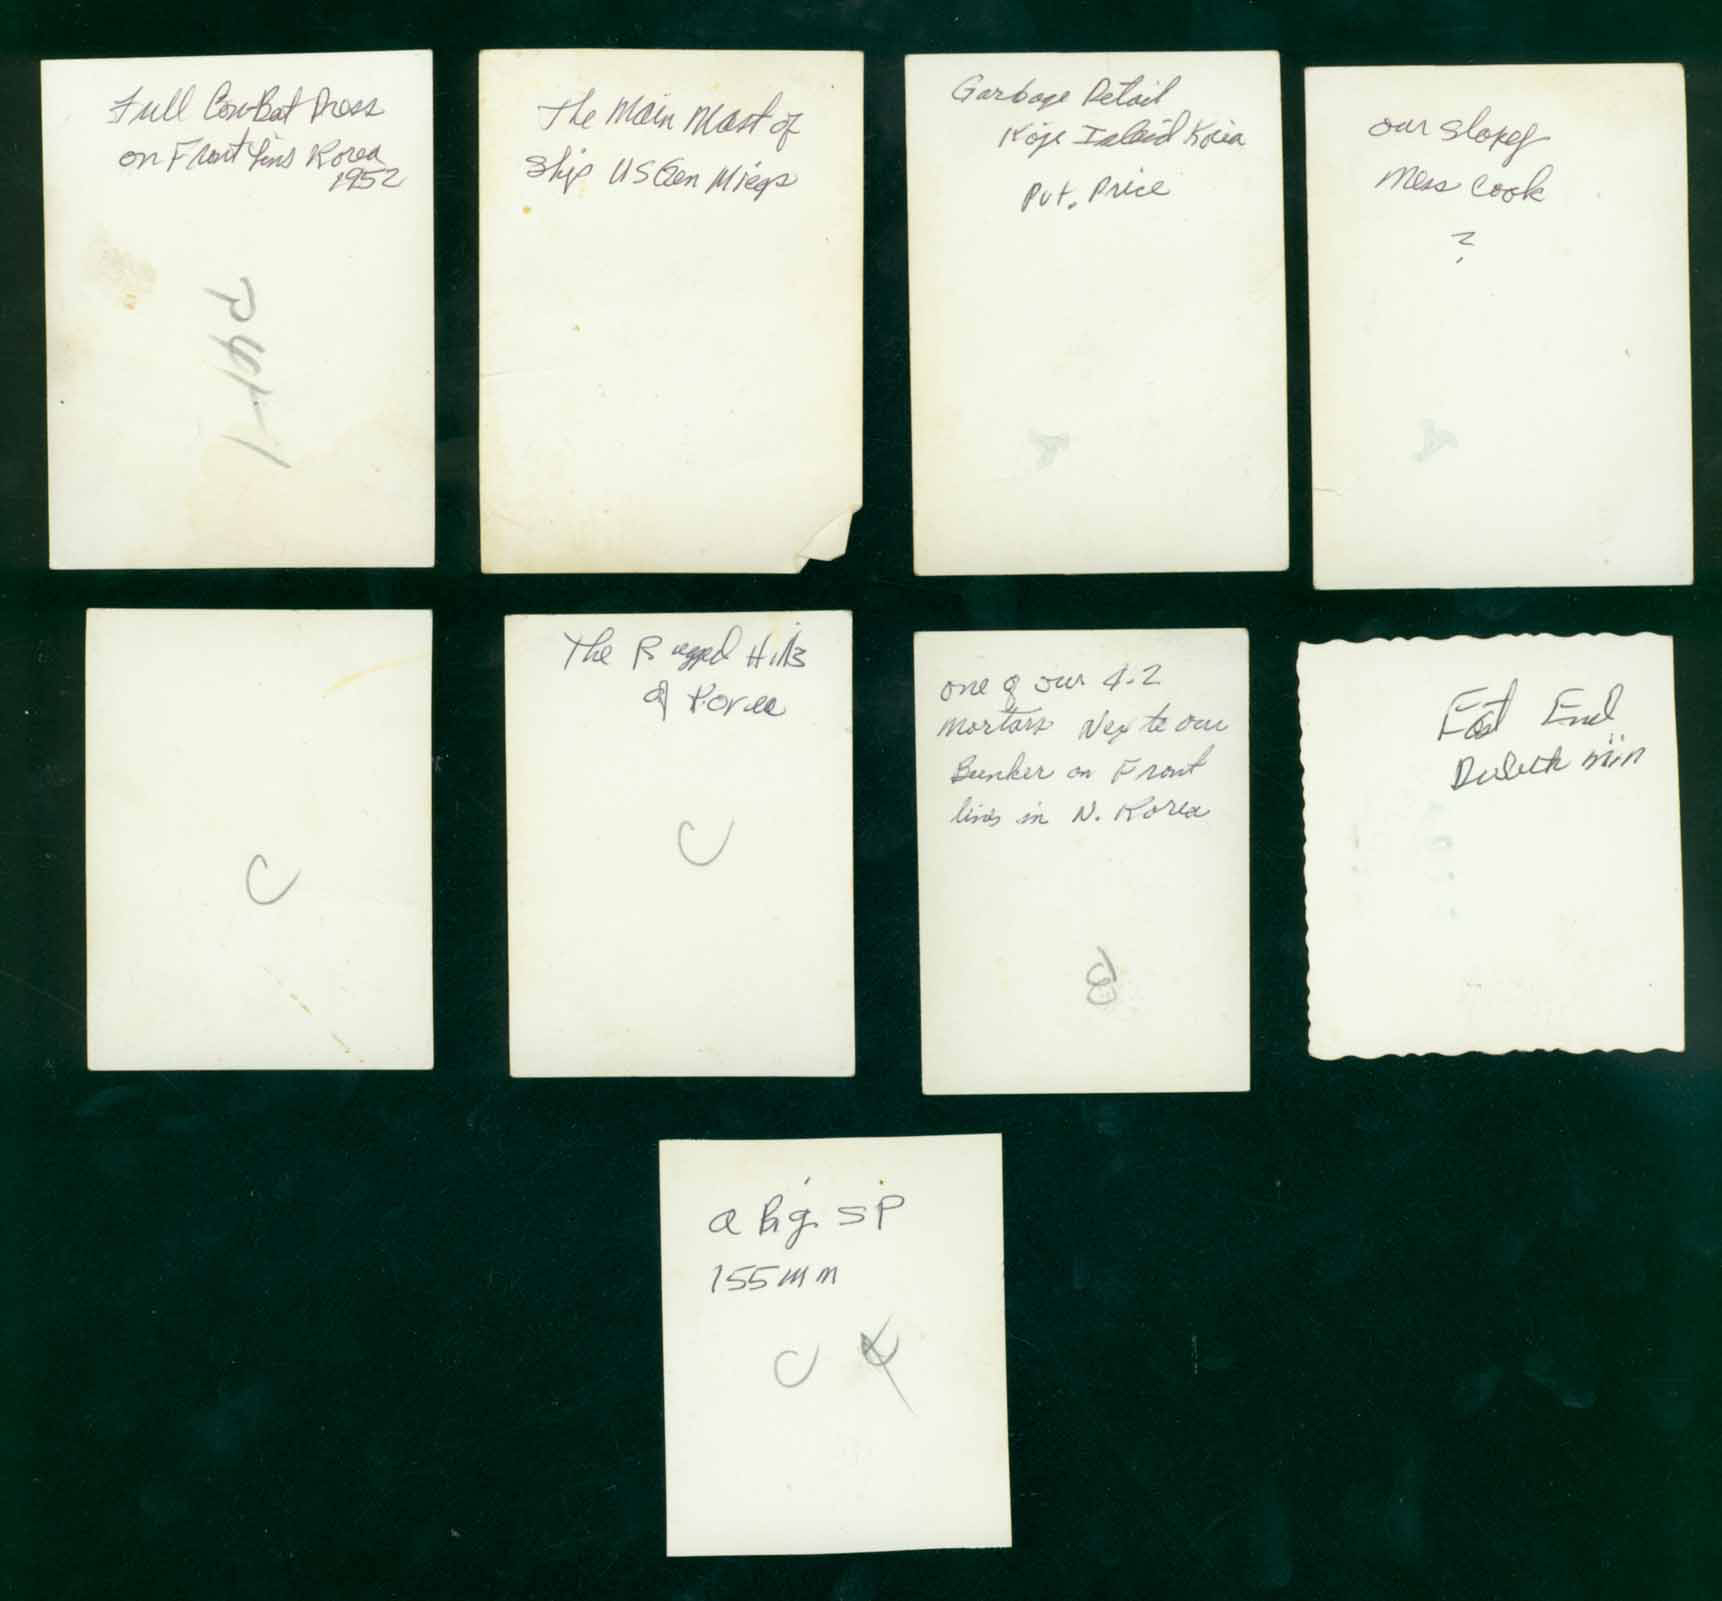 Full Combat Dress
on Front lins Korea
1952
The Main Mast of
Ship US Gen Miegs
Garbage Detail
Koje Island Koria
Pvt. Price
our slopey
Mess Cook
?
C
The Rugged Hills
of Korea
C
one of our 4.2
mortars Nex to our
Bunker on Front
lines in N. Korea
East End
Duluth Min
a Big SP
155 mm
C